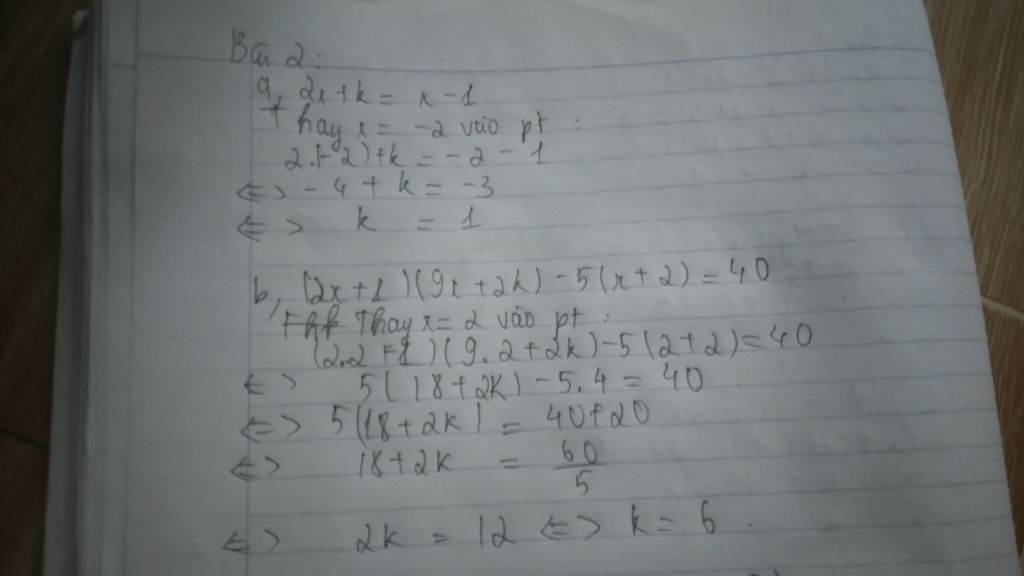 Bài 2:
a, 2x+k = x-1
Thay x = -2 vào pt :
2.(-2)+k = -2 - 1
<=> -4 + k = -3
<=> k = 1
b, (2x+1)(9x+2k)-5(x+2)=40
Thay x=2 vào pt :
(2.2+1)(9.2+2k)-5(2+2)=40
<=> 5(18+2k)-5.4=40
<=> 5(18+2k) = 40+20
<=> 18+2k = 60/5
<=> 2k = 12 <=> k = 6 .